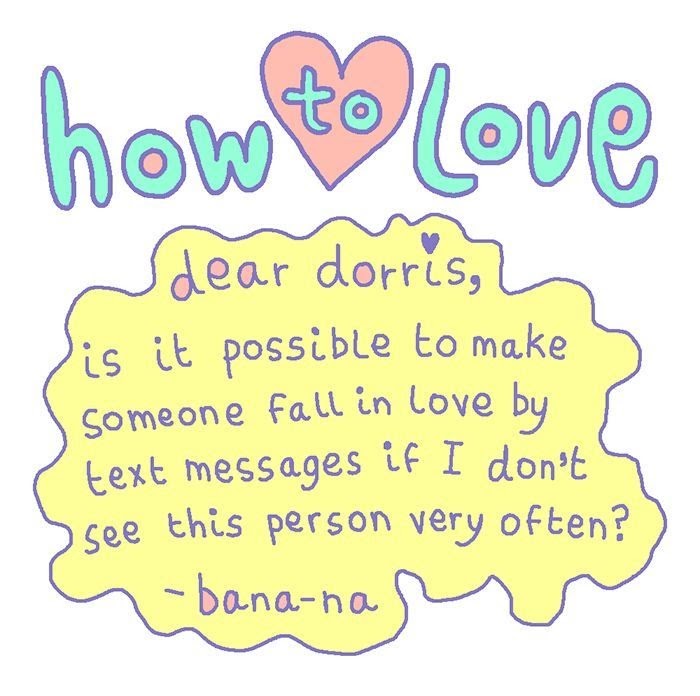 how to love
dear dorris,
is it possible to make
someone fall in love by
text messages if I don't
see this person very often?
-bana-na